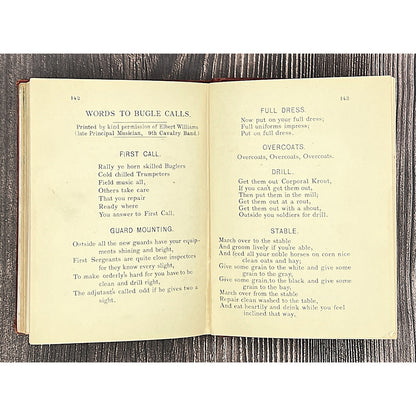 142
WORDS TO BUGLE CALLS.
Printed by kind permission of Elbert Williams
(late Principal Musician, 9th Cavalry Band.)
FIRST CALL.
Rally ye horn skilled Buglers
Cold chilled Trumpeters
Field music all,
Others take care
That you repair
Ready where
You answer to First Call.
GUARD MOUNTING.
Outside all the new guards have your equip-
ments shining and bright,
First Sergeants are quite close inspectors
for they know every slight,
To make orderly's hard for you have to be
clean and drill right,
The adjutant's called odd if he gives two a
night.
143
FULL DRESS.
Now put on your full dress;
Full uniforms impress;
Put on full dress.
OVERCOATS.
Overcoats, Overcoats, Overcoats.
DRILL.
Get them out Corporal Krout,
If you can't get them out,
Then put them in the mill,
Get them out at a rout,
Get them out with a shout,
Outside you soldiers for drill.
STABLE.
March over to the stable
And groom lively if you're able,
And feed all your noble horses on corn nice
clean oats and hay;
Give some grain to the white and give some
grain to the gray,
Give some grain to the black and give some
grain to the bay,
March over from the stable
Repair clean washed to the table,
And eat heartily and drink while you feel
inclined that way.